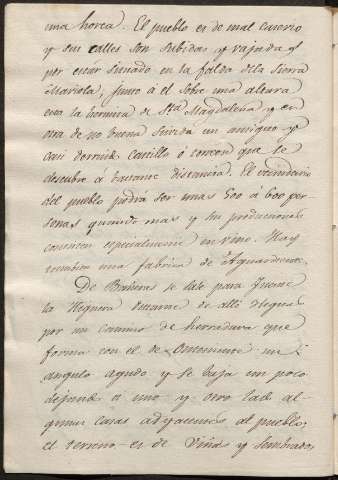 una horca. El pueblo es de mal caserio
y sus calles son subidas y vajadas
por estár situado en la falda de la Sierra
Mariola, junto á él sobre una altura
esta la hermita de Sta. Magdalena y en
otra de no buena subida un antiguo y
casi derruido Castillo ó torreon que se
descubre á bastante distancia. El vecindario
del pueblo podrá ser unas 500 á 600 per
sonas quando mas y sus producciones
consisten especialmente en vino. Hay
tambien una fabrica de Aguardiente.
De Bañeras se sale para Fuente
la Higuera distante de alli leguas
por un camino de herradura que
forma con el de Onteniente un
angulo agudo y se baja un poco
dejando a uno y otro lado al-
gunas casas adyacentes al pueblo;
el terreno es de viñas y sembrados